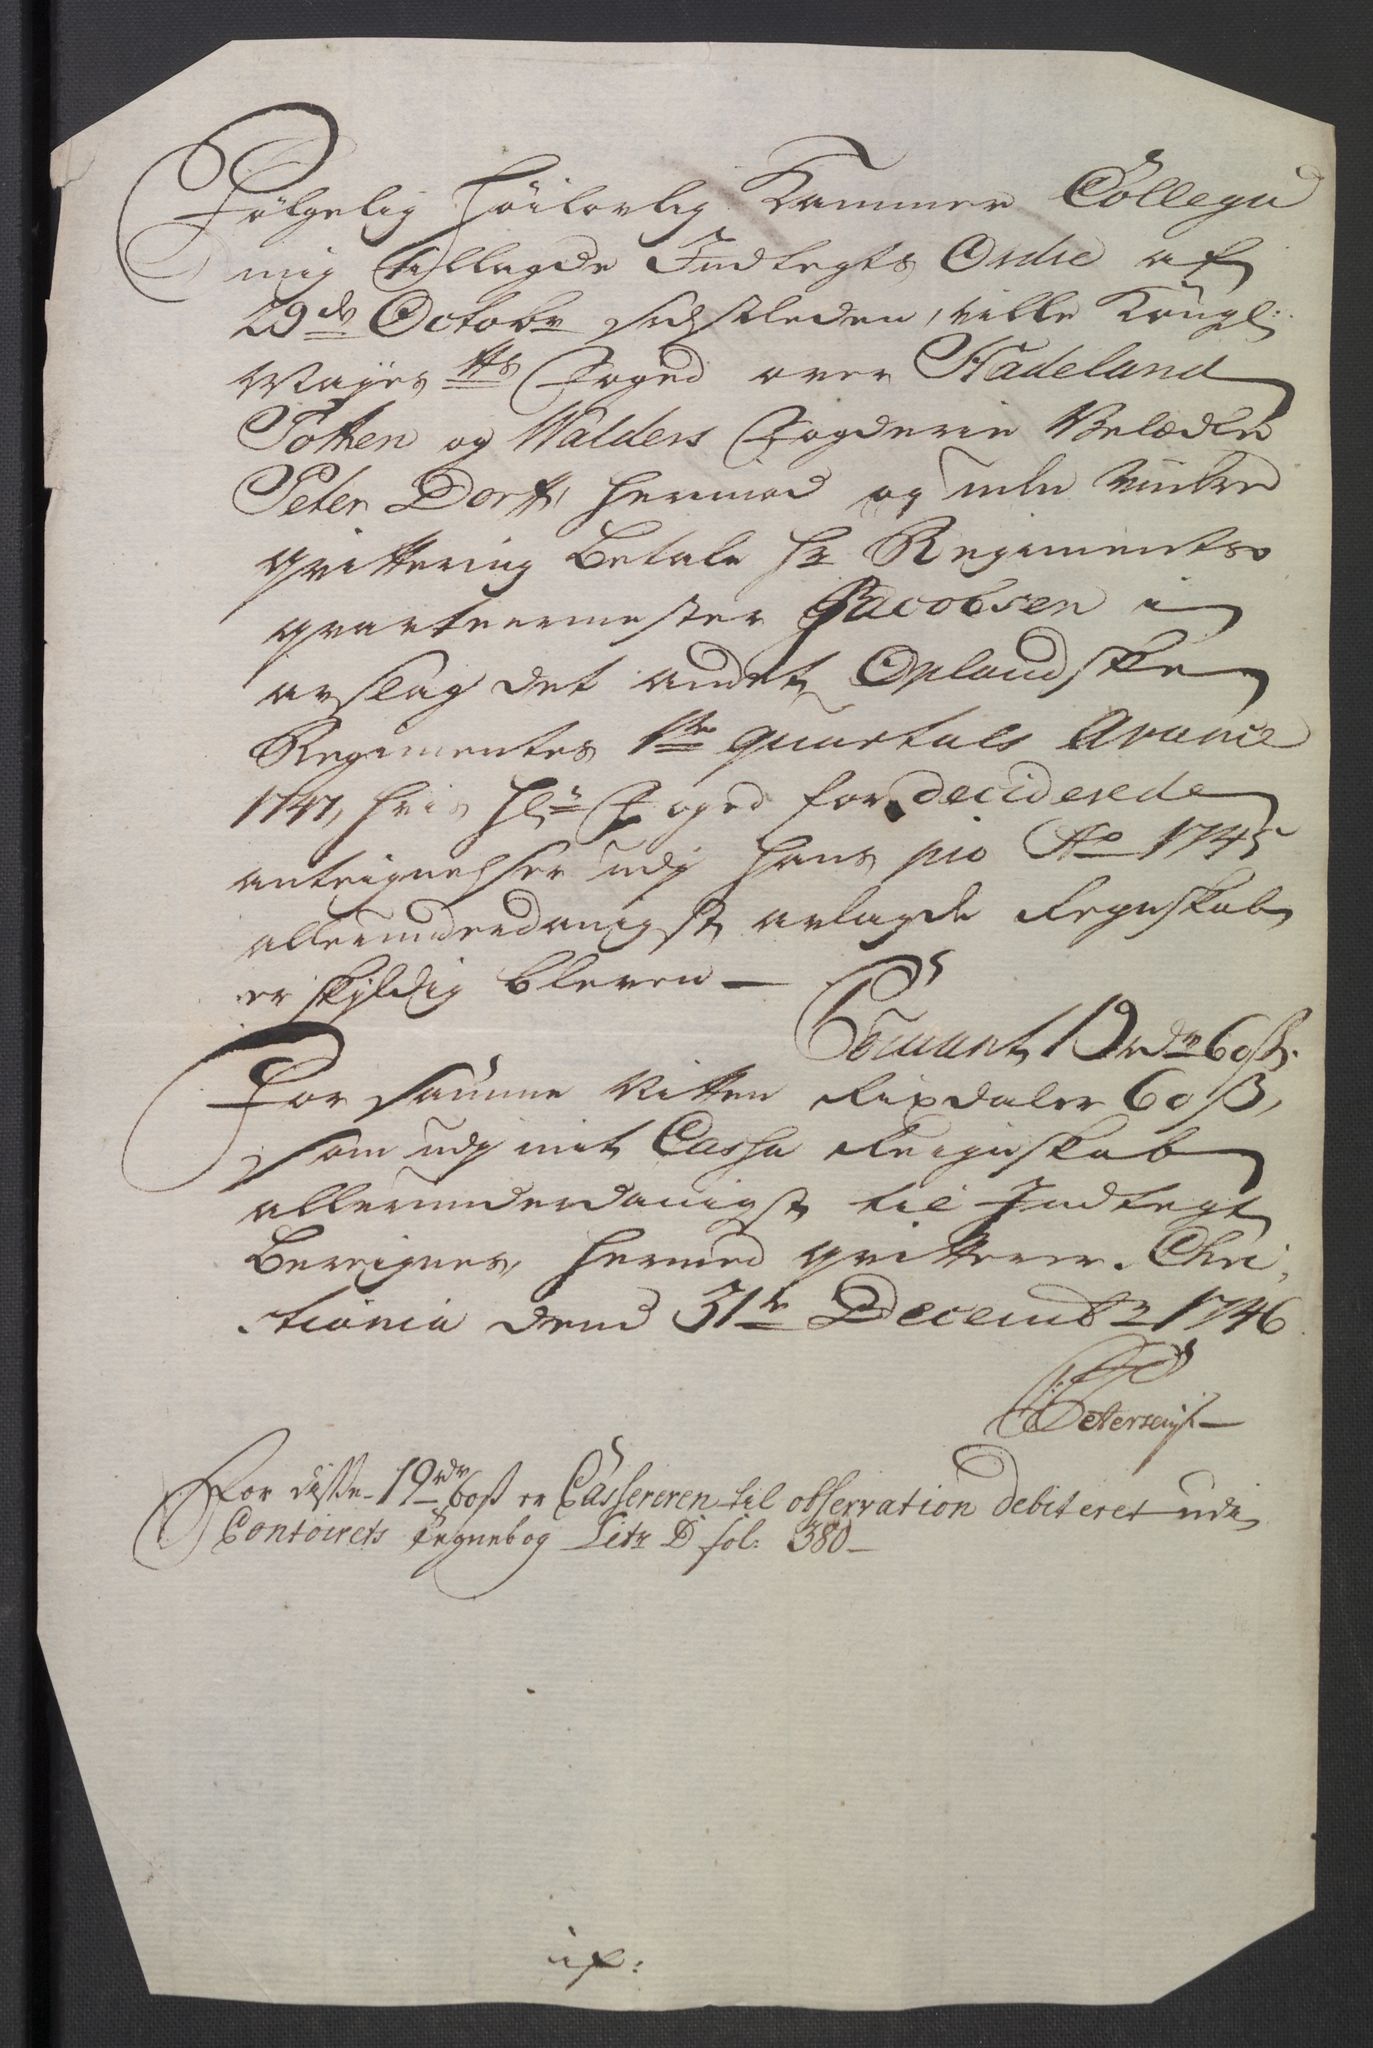 Følgelig Høilovlig Kammer Collegii
mig tillagde Indtegts Ordre af
29de Octobr sidstleden, ville Kongl:
Mayts Foged over Hadeland
Totten og Walders Fogderie Velædle
Peter Dorff, hermod og uden videre
qvittering betale Hr Regiments
qvarteermester Jacobsen i
avslag det andet Oplandske
Regimentes 1te quartals Avance
1747, hvis Hr Foged for deciderede
antegnelser udj hans pro Ao 1745
allerunderdanigst avlagde Regnskab
er skyldig bleven —
Courant 19 rdr 60 ß.
For samme Nitten Rixdaler 60 ß,
som udj mit Cassa Reignskab
allerunderdanigst til Indtegt
Bereignes, hermed qvitterer. Chri-
stiania dend 31te Decembr 1746
Petersen
For disse 19 rdr 60 ß er Cassereren til observation debiteret udi
Contoirets Regnebog Litr D fol: 380 —